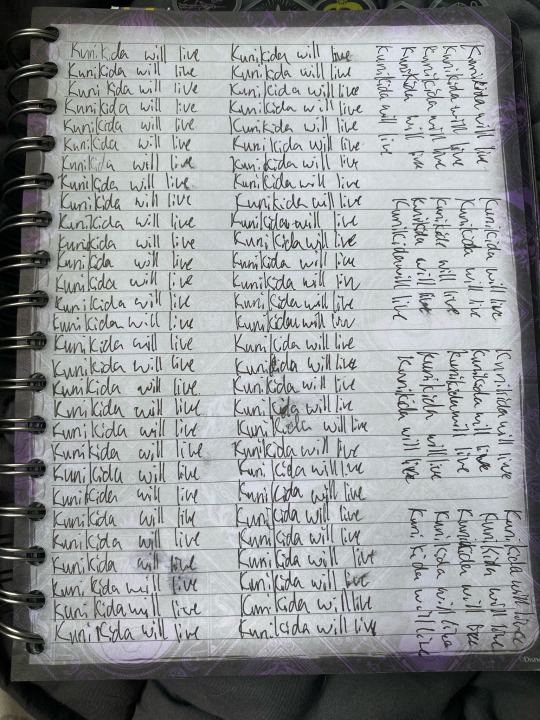 Kunikida will live Kunikida will live
Kunikida will live Kunikida will live
Kunikida will live Kunikida will live
Kunikida will live Kunikida will live
Kunikida will live Kunikida will live
Kunikida will live Kunikida will live
Kunikida will live Kunikida will live
Kunikida will live Kunikida will live
Kunikida will live Kunikida will live
Kunikida will live Kunikida will live
Kunikida will live Kunikida will live
Kunikida will live Kunikida will live
Kunikida will live Kunikida will live
Kunikida will live Kunikida will live
Kunikida will live Kunikida will live
Kunikida will live Kunikida will live
Kunikida will live Kunikida will live
Kunikida will live Kunikida will live
Kunikida will live Kunikida will live
Kunikida will live Kunikida will live
Kunikida will live Kunikida will live
Kunikida will live Kunikida will live
Kunikida will live Kunikida will live
Kunikida will live Kunikida will live
Kunikida will live Kunikida will live
Kunikida will live Kunikida will live
Kunikida will live Kunikida will live
Kunikida will live Kunikida will live
Kunikida will live Kunikida will live
Kunikida will live
Kunikida will live
Kunikida will live
Kunikida will live
Kunikida will live
Kunikida will live
Kunikida will live
Kunikida will live
Kunikida will live
Kunikida will live
Kunikida will live
Kunikida will live
Kunikida will live
Kunikida will live
Kunikida will live
Kunikida will live
Kunikida will live
Kunikida will live
Kunikida will live
Kunikida will live